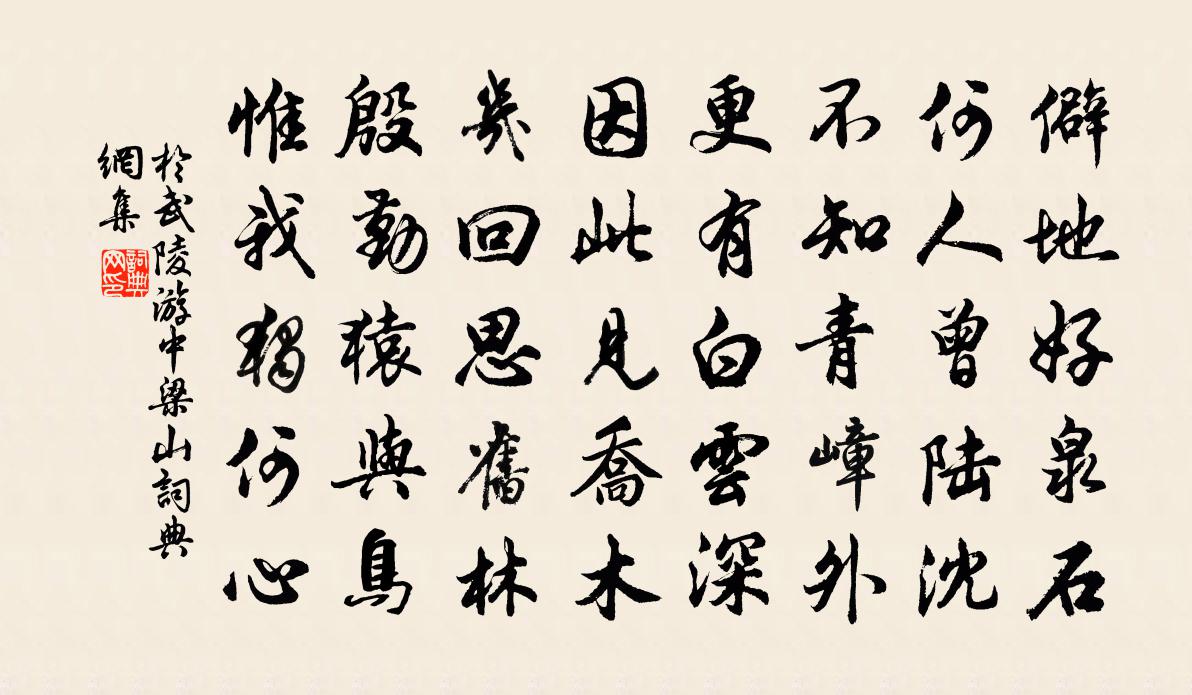 僻地好泉石
何人曾陆沈
不知青嶂外
更有白雲深
因此見喬木
幾回思舊林
殷勤猿與鳥
惟我獨何心
於武陵游中梁山詞典
網集
詞典
网印